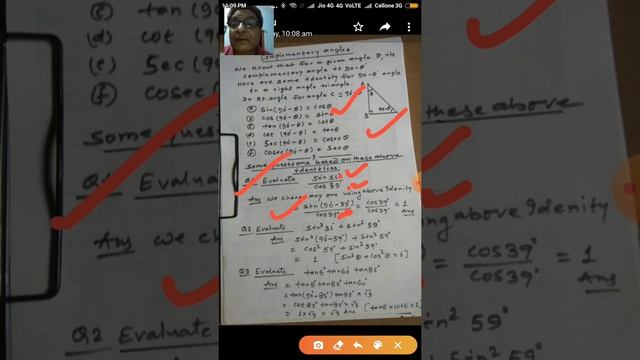 11:09 PM Jio 4G 4G VoLTE Cellone 3G
ay, 10:08 am
Complementary angles
We know that for a given angle θ, its
complementary angle is 90-θ
Here are some identity for 90-θ angle
in a right angle triangle.
In Rt. angle for angle C = 90-θ
A
θ
B
90-θ
(a) Sin(90-θ) = cosθ
(b) cos(90-θ) = Sinθ
(c) tan(90-θ) = cotθ
(d) cot(90-θ) = tanθ
(e) Sec(90-θ) = cosecθ
(f) cosec(90-θ) = Secθ
Some questions based on these above
identities
Q1 Evaluate Sin 51°/cos 39°
Ans We change any one using above Idenity
Sin(90-39°)/cos39° = cos39°/cos39° = 1 Ans
Q2 Evaluate Sin² 31° + Sin² 59°
Ans Sin²(90-59°) + Sin² 59°
= cos² 59° + sin² 59°
= 1 [Sin²θ + cos²θ = 1]
Q3 Evaluate tan5° tan60° tan85°
Ans = tan5° tan85° tan60°
= tan(90-85°) tan85° × √3
= cot 85° tan85° × √3 [tanθ × cotθ = 1]
= 1 × √3 = √3 Ans
(c) tan(90
(d) cot (90
(e) Sec(90
(f) cosec
Some que
these above
Q1 Evalua
Ans We ch
above Idenity
cos39°/cos39° = 1
Ans
Q2 Evalua
en² 59°